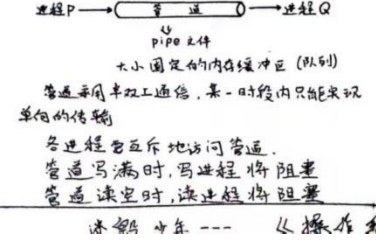 进程P 管道 进程Q
pipe 文件
大小固定的内存缓冲区 (队列)
管道采用半双工通信,某一时段内只能实现
单向的传输
各进程要互斥地访问管道.
管道写满时,写进程将阻塞
管道读空时,读进程将阻塞
少年 --- 《操作系